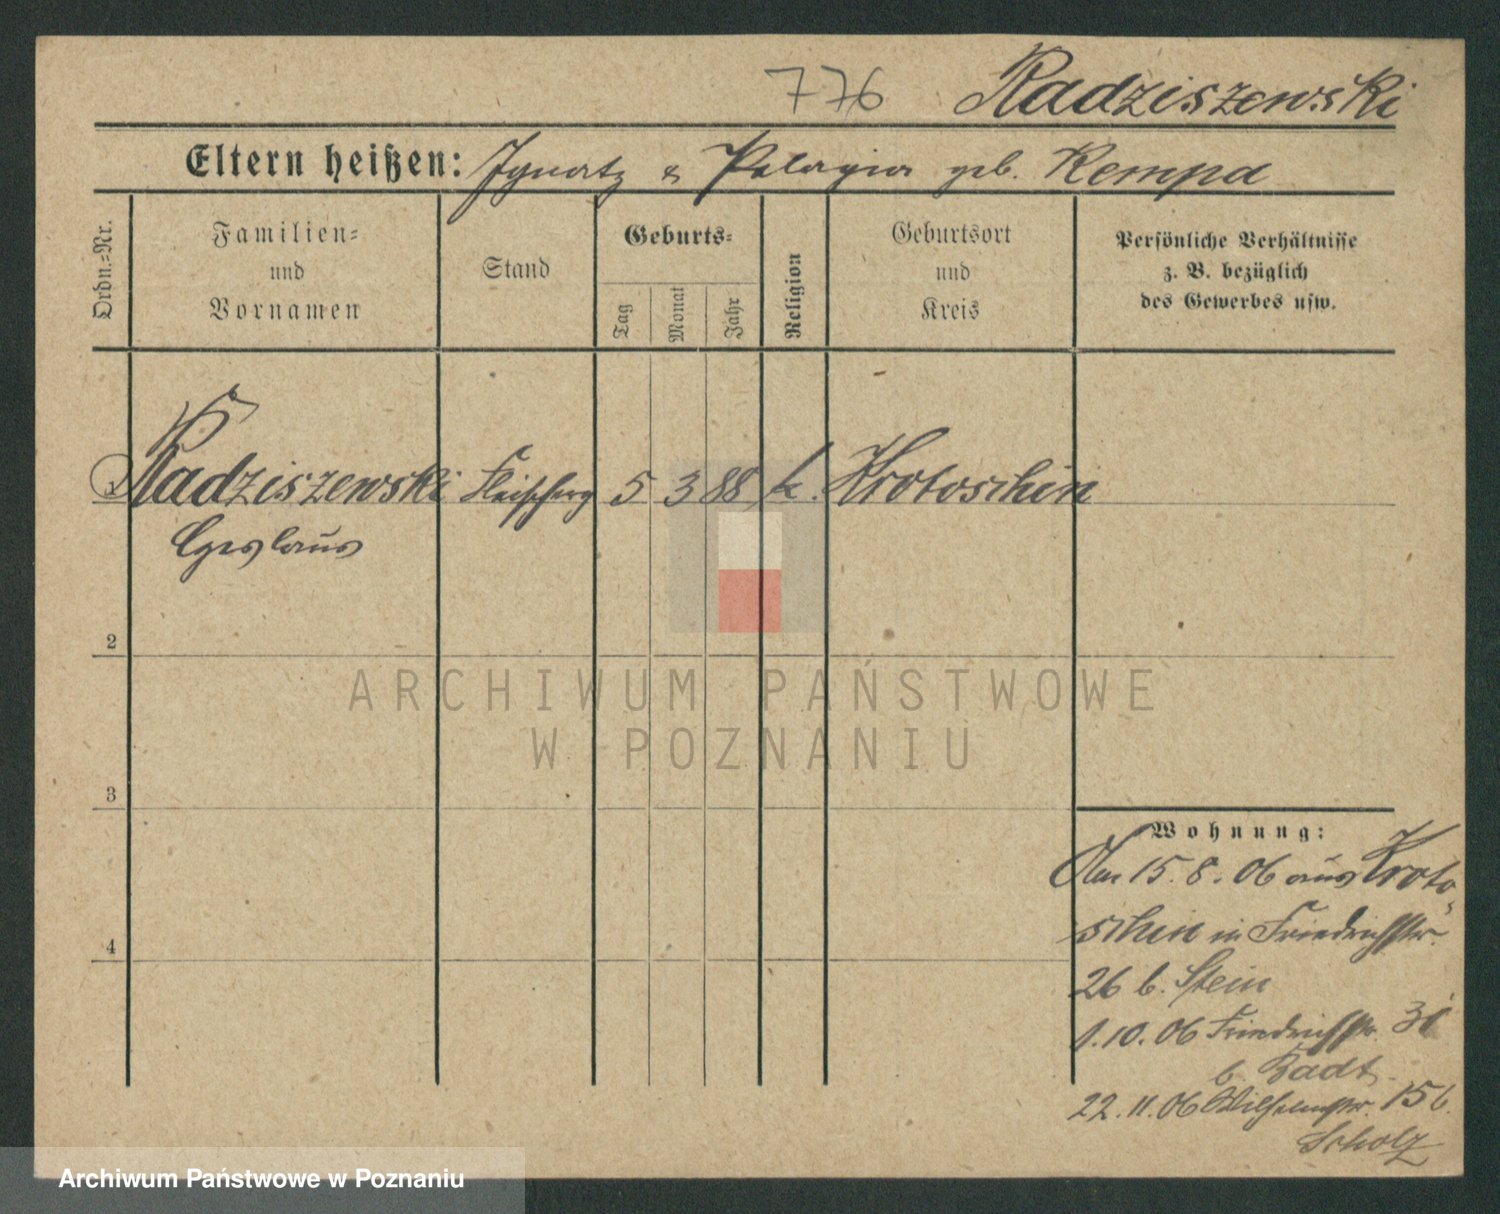 776 Radziszewski
Eltern heißen: Ignatz & Pelagia geb. Kempa
Ordn.-Nr.
Familien-
und
Vornamen
Stand
Geburts-
Tag
Monat
Jahr
Religion
Geburtsort
und
Kreis
Persönliche Verhältnisse
z. B. bezüglich
des Gewerbes usw.
Radziszewski Fleischerg 5 3 88 k. Krotoschin
Ceslaus
2
3
4
ARCHIWUM PAŃSTWOWE
W POZNANIU
Wohnung:
Am 15.8.06 aus Kroto-
schin in Friedrichstr.
26 b. Stein
1.10.06 Friedrichstr. 31
b. Radt
22.11.06 Wilhelmstr. 15 b.
Scholz
Archiwum Państwowe w Poznaniu